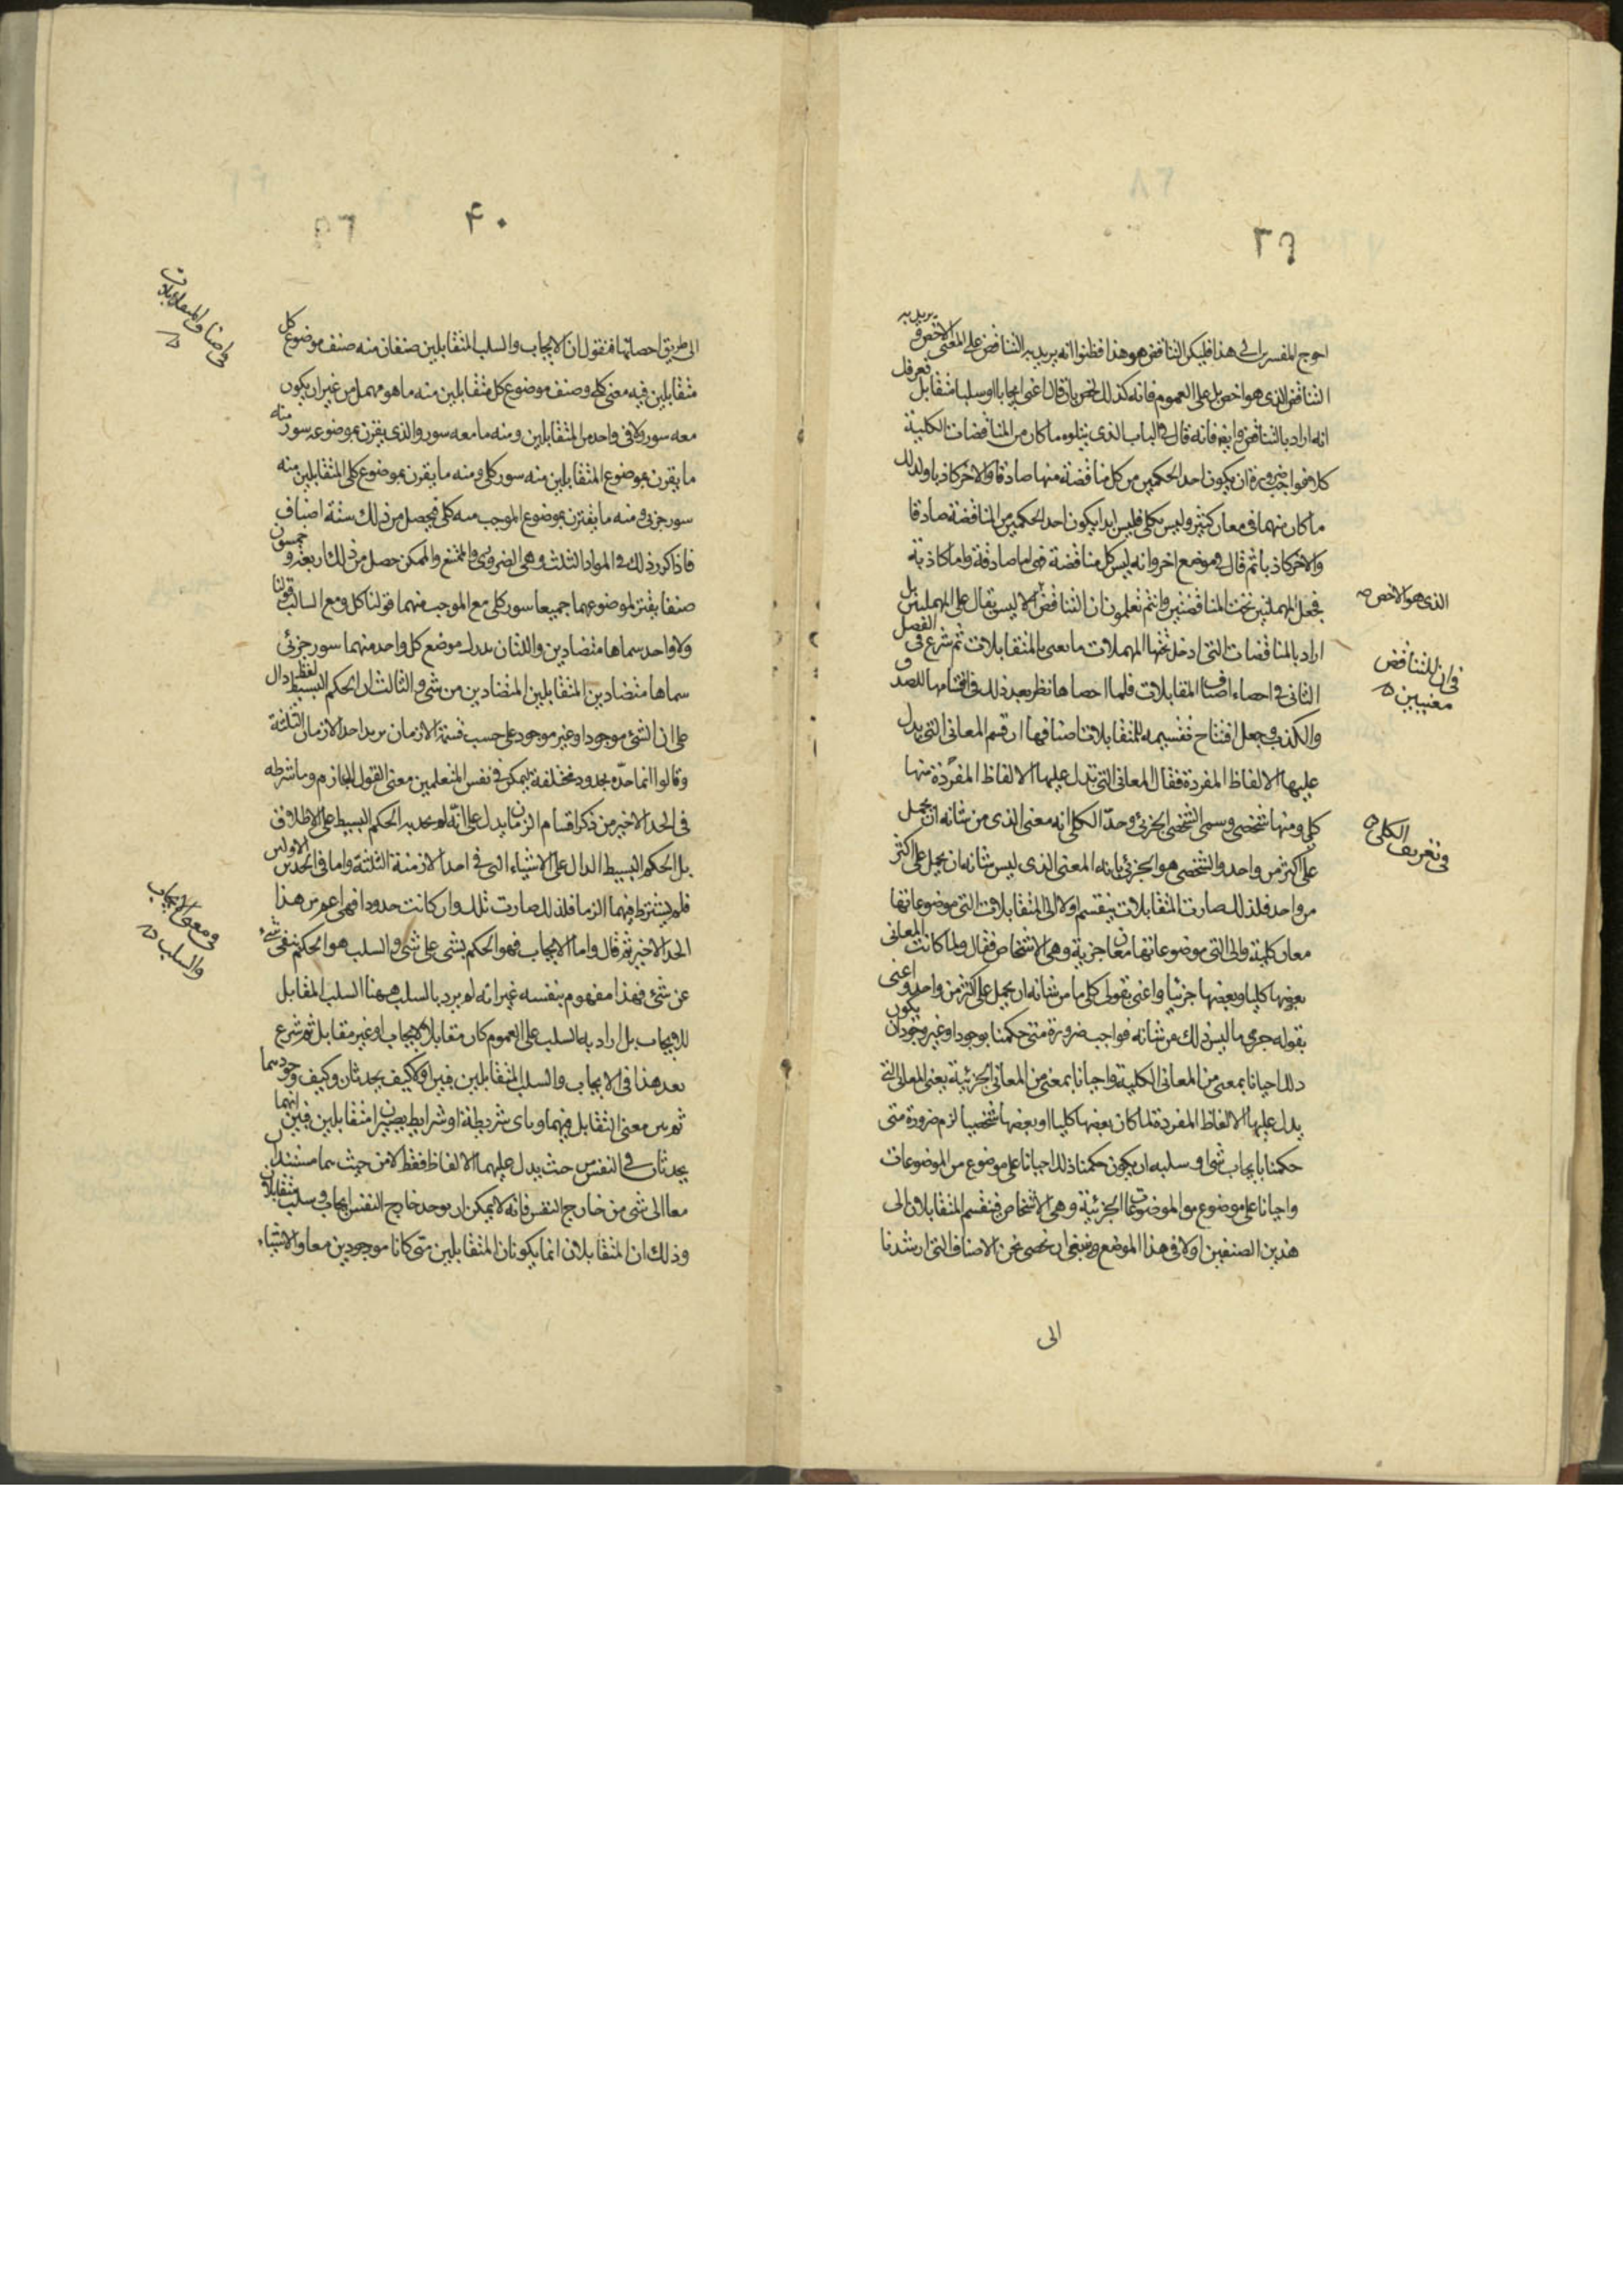 ٣٩
احوج المفسرين الى هذا فليكن التناقض هو هذا فظنوا انه يريد به التناقض على المعنى الاخص
التناقض الذى هو اخص بل على العموم فانه كذلك لخص بان قال اعنى ايجابا او سلبا متقابل
انه اراد بالتناقض وايضا فانه قال فى الباب الذى يتلوه ما كان من المناقضات الكلية
كلاهما فواجب ضرورة ان يكون احد الحكمين من كل مناقضة منها صادقا والاخر كاذبا ولذلك
ما كان منهما فى معان كثير وليس بكلى فليس ابدا يكون احد الحكمين من المناقضة صادقا
والاخر كاذبا ثم قال فى موضع اخر وانه ليس كل مناقضة فهى اما صادقة واما كاذبة
فجعل المهملتين تحت المتناقضتين وانتم تعلمون ان التناقض الا ليس يقال على المهملتين بل
اراد بالمناقضات التى ادخل تحتها المهملات ما يعنى بالمتقابلات ثم شرع فى الفصل
الثانى فى احصاء اصناف المقابلات فلما احصاها نظر بعد ذلك فى اقتسامها للصدق
والكذب وجعل افتتاح تقسيمه للمتقابلات اصنافها ان قسم المعانى التى يدل
عليها الالفاظ المفردة فقال المعانى التى تدل عليها الالفاظ المفردة منها
كلى ومنها شخصى وسمى الشخصى الجزئى وحد الكلى انه معنى الذى من شانه ان يحمل
على اكثر من واحد والشخصى هو الجزئى بانه المعنى الذى ليس شانه ان يحمل على اكثر
من واحد فلذلك صارت المتقابلات ينقسم اولا الى المتقابلات التى موضوعاتها
معان كلية والى التى موضوعاتها معان جزئية وهى الاشخاص فقال ولما كانت المعانى
بعضها كليا وبعضها جزئيا واعنى بقولى كلى ما من شانه ان يحمل على اكثر من واحد واعنى
بقوله جزى ما ليس ذلك من شانه فواجب ضرورة متى حكمنا بوجود او غير وجود ان يكون
ذلك احيانا بمعنى من المعانى الكلية واحيانا بمعنى من المعانى الجزئية يعنى المعانى التى
يدل عليها الالفاظ المفردة لما كان بعضها كليا وبعضها شخصيا لزم ضرورة متى
حكمنا بايجاب شى او سلبه ان يكون حكمنا ذلك احيانا على موضوع من الموضوعات
واحيانا على موضوع من الموضوعات الجزئية وهى الاشخاص فتقسم المتقابلان الى
هذين الصنفين اولا فى هذا الموضع وينبغى ان نحصى نحن الاصناف التى ارشدنا
الى
الذى هو الاخص صه
فى ان للتناقض
معنيين
فى تعريف الكلى
۴٠
الى طريق احصائها فنقول ان الايجاب والسلب المتقابلين صنفان منه صنف موضوع كل
متقابلين فيه معنى كلى وصنف موضوع كل متقابلين منه ما هو مهمل من غير ان يكون
معه سور ولا فى واحد من المتقابلين ومنه ما معه سور والذى يقرن بموضوعه سور منه
ما يقرن بموضوع المتقابلين منه سور كلى ومنه ما يقرن بموضوع كلى المتقابلين منه
سور جزئى ومنه ما يقترن بموضوع الموجب منه كلى فيحصل من ذلك ستة اصناف
فاذا كرر ذلك فى المواد الثلث وهى الضرورى والممتنع والممكن حصل من ذلك اربعة وخمسون
صنفا يقترن لموضوعهما جميعا سور كلى مع الموجب منهما قولنا كل ومع السالب قولنا
ولا واحد سماها متضادين واللتان بدل موضع كل واحد منهما سور جزئى
سماها متضادين المتقابلين المتضادين من شى والثالث ان الحكم البسيط لفظ دال
على ان الشئ موجود او غير موجود على حسب قسمة الازمان يريد احد الازمان الثلثة
وقالوا انما حده بحدود مختلفة ليمكن فى نفس المتعلمين معنى القول الجازم وما شرطه
فى الحد الاخير من ذكر اقسام الزمان يدل على انه لم يحد به الحكم البسيط على الاطلاق
بل الحكم البسيط الدال على الاشياء التى فى احد الازمنة الثلثة واما فى الحدين الاولين
فلم يشترط فيهما الزمان فلذلك صارت تلك وان كانت حدودا فهى اعم من هذا
الحد الاخير ثم قال واما الايجاب فهو الحكم بشى على شى والسلب هو الحكم بنفى شى
عن شئ فهذا مفهوم بنفسه غير انه لم يرد بالسلب ههنا السلب المقابل
للايجاب بل اراد به السلب على العموم كان مقابلا للايجاب او غير مقابل ثم شرع
بعد هذا فى الايجاب والسلب المتقابلين فبين اولا كيف يحدثان وكيف وجودهما
ثم بين معنى التقابل فيهما وباى شريطة او شرايط يصيران متقابلين فبين انهما
يحدثان فى النفس حيث يدل عليهما الالفاظ فقط لا من حيث هما مستندان
معا الى شى من خارج النفس فانه لا يمكن ان يوجد خارج النفس ايجاب وسلب متقابلان
وذلك ان المتقابلان انما يكونان المتقابلين متى كانا موجودين معا والاشياء
فى اصناف المتقابلات
فى معنى الايجاب
والسلب